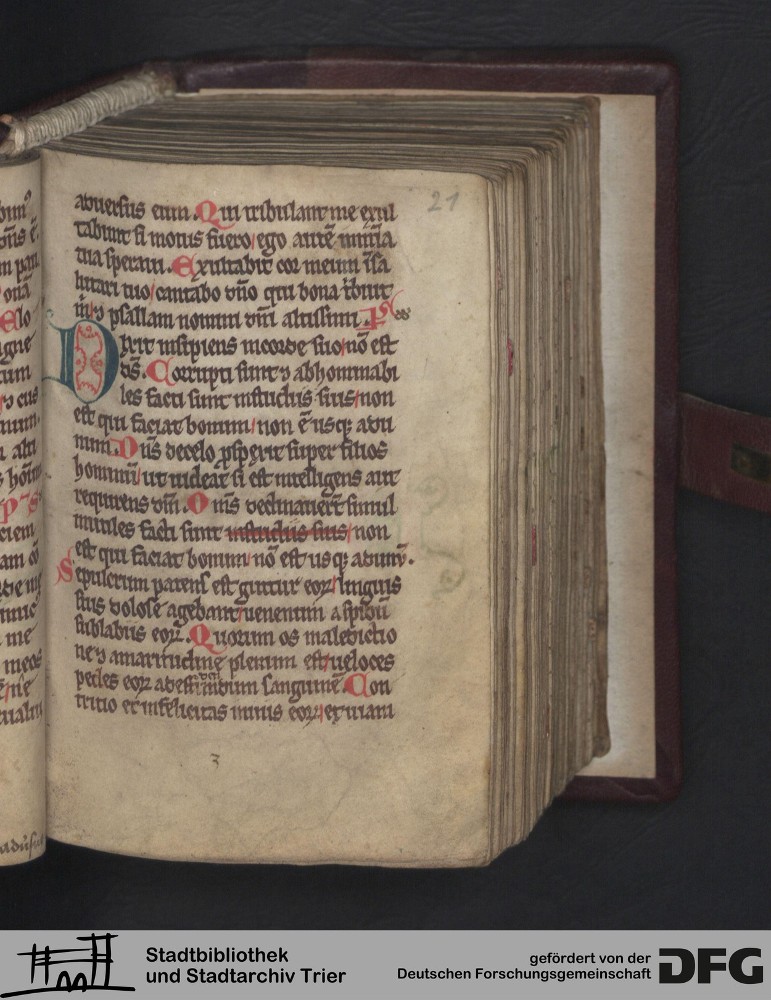 21
aduersus eum. Qui tribulant me exul
tabunt si motus fuero ego autē in mīa
tua speraui. Exultabit cor meum ī sa
lutari tuo cantabo dño qui bona tbuit
m̄ ⁊ psallam nomini dñi altissimi. Ps
Dixit insipiens in corde suo nō est
ds̄. Corrupti sunt ⁊ abhominabi
les facti sunt in studiis suis non
est qui faciat bonum non ē usq; adu
num. Dn̄s de celo ꝓspexit super filios
hominū ut uideat si est intelligens aut
requirens dm̄. Om̄s declinauerūt simul
inutiles facti sunt in studiis suis non
est qui faciat bonum nō est usq; ad unū.
Sepulcrum patens est guttur eoꝝ linguis
suis dolose agebant uenenum aspidū
sub labiis eoꝝ. Quorum os maledictio
ne ⁊ amaritudine plenum est ueloces
pedes eoꝝ ad effundendum sanguinē. Con
tritio et infelicitas in uiis eoꝝ et uiam
3
Stadtbibliothek
und Stadtarchiv Trier
gefördert von der
Deutschen Forschungsgemeinschaft
DFG